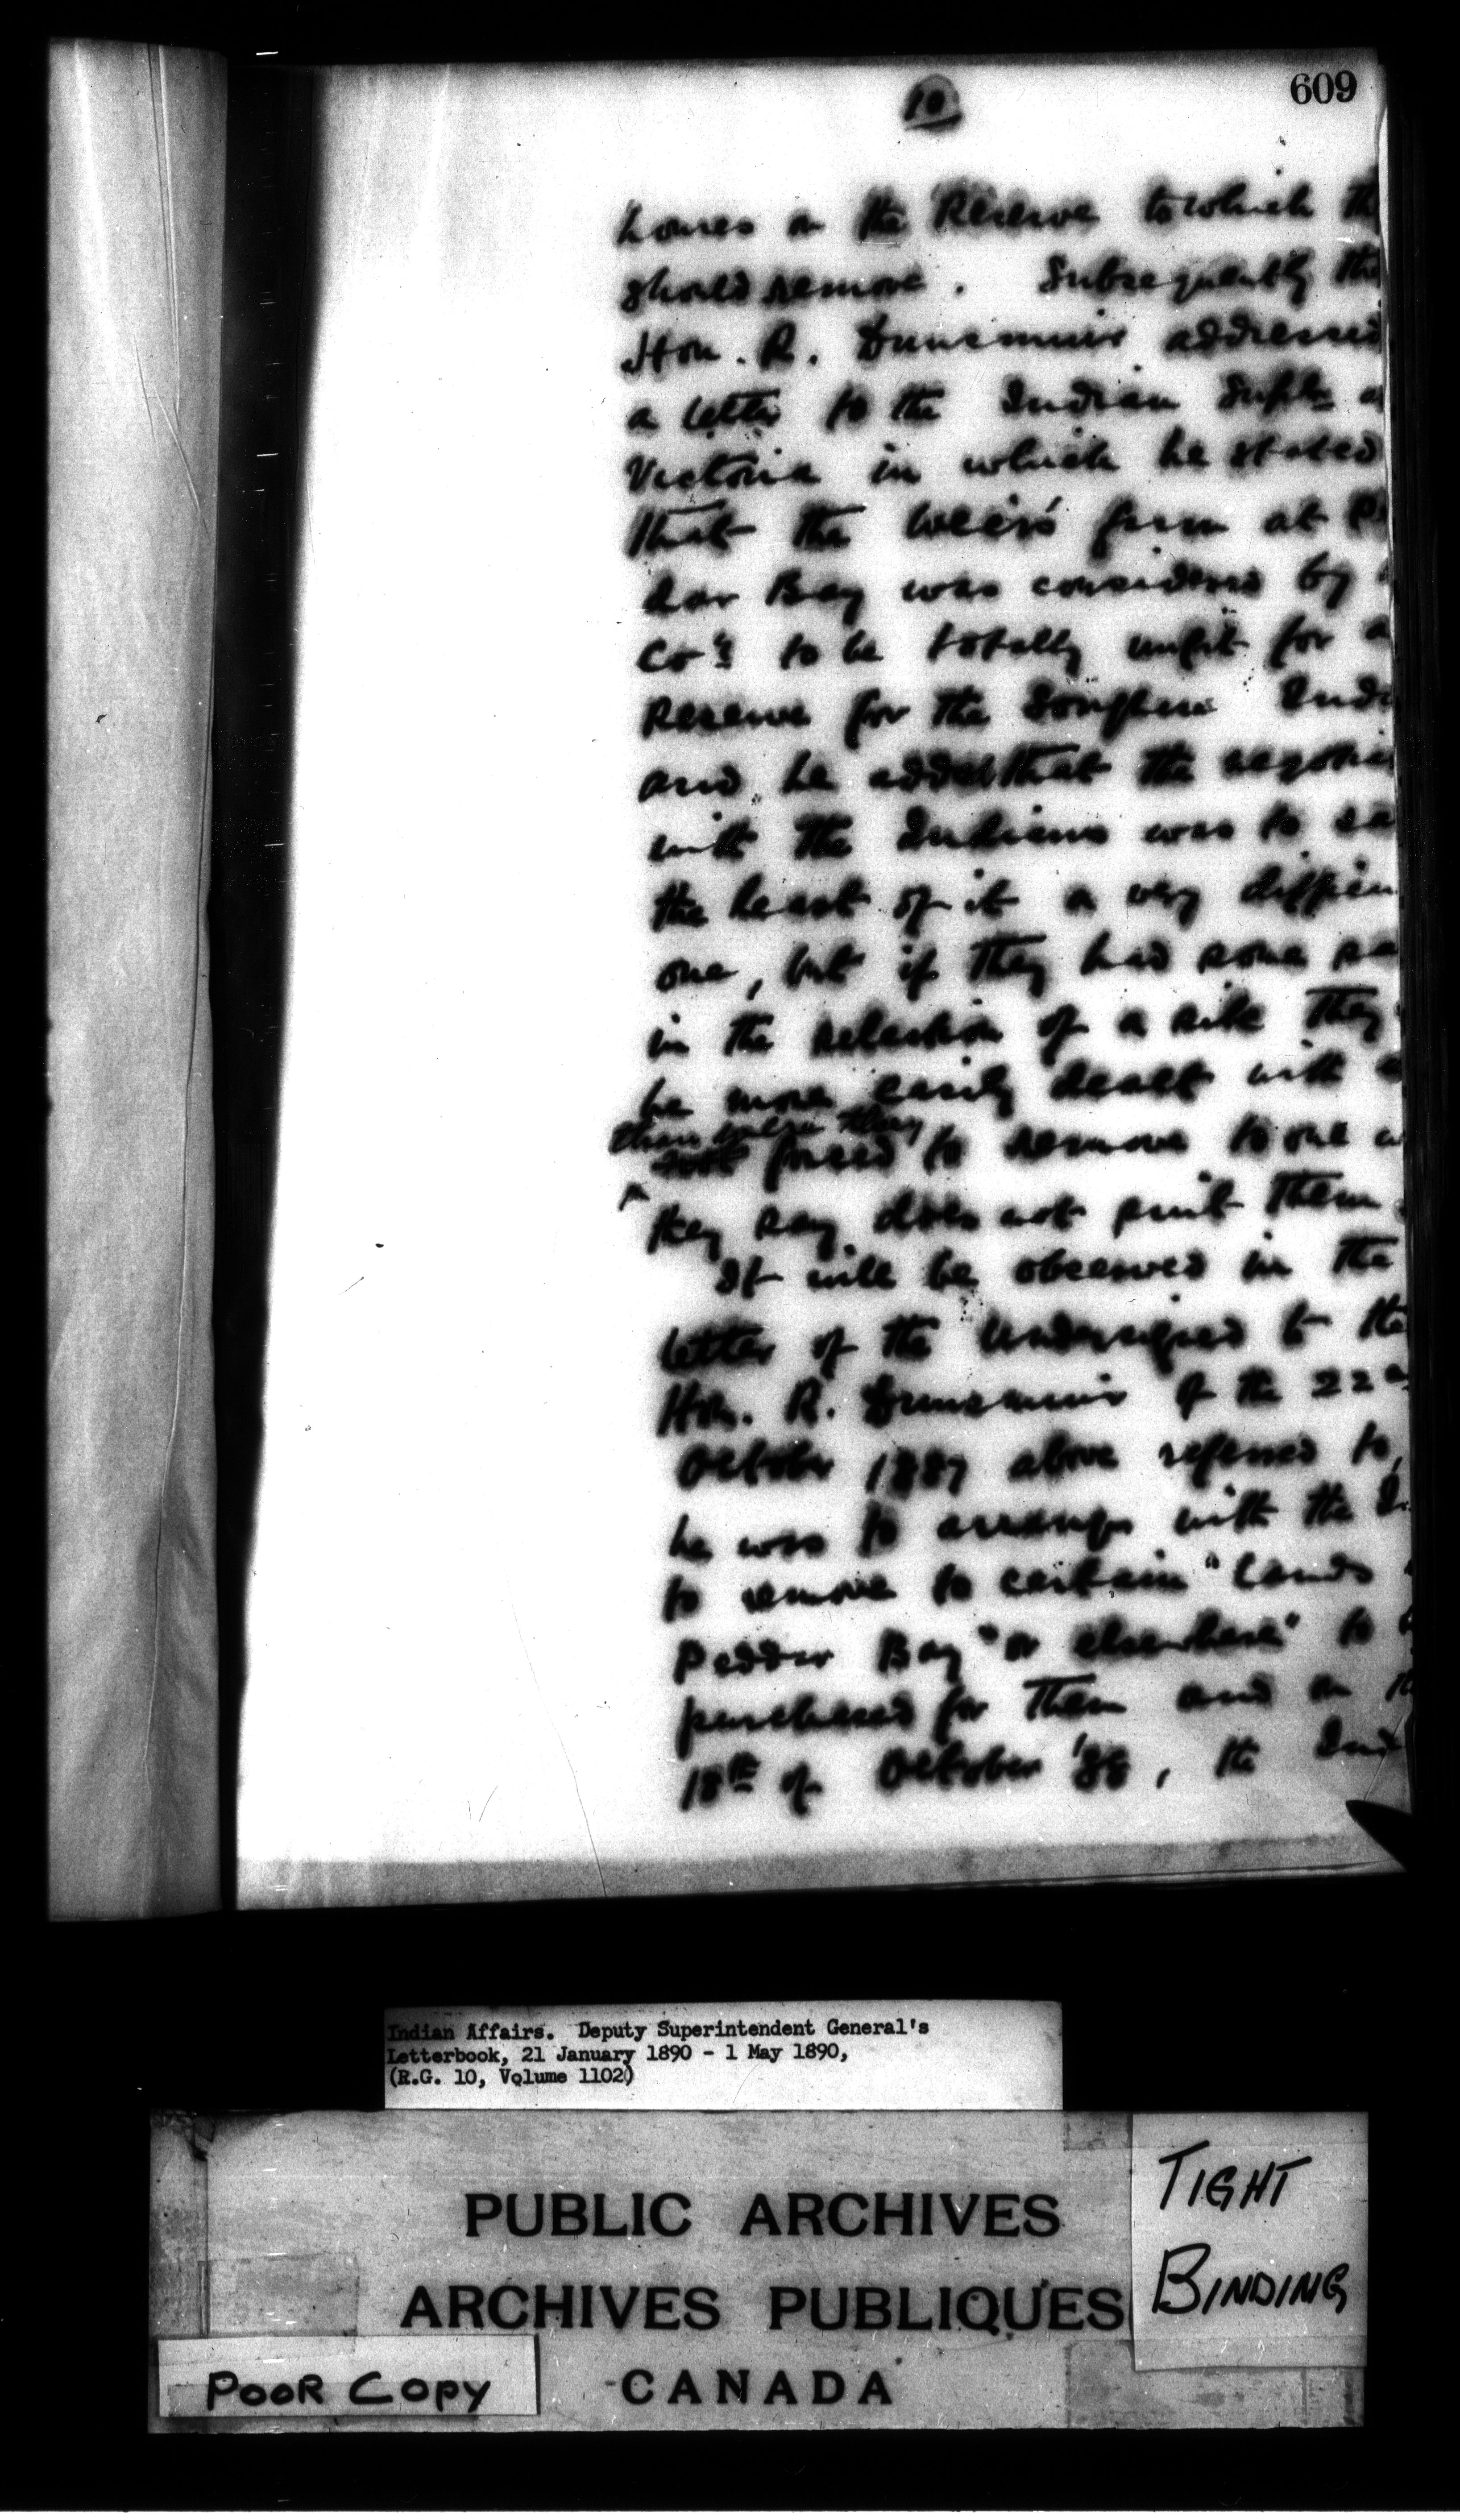 609
10
homes on the Reserve to which th
should remove. Subsequently the
Hon. R. Dunsmuir addressed
a letter to the Indian Supt. a
Victoria in which he stated
that the Weir's farm at P
dar Bay was considered by
Co's to be totally unfit for a
Reserve for the Songhees Indi
and he added that the negotia
with the Indians was to sa
the least of it a very difficu
one, but if they had some sa
in the selection of a site they
be more easily dealt with
than when they
forced to remove to one w
they say does not suit them
It will be observed in the
letter of the Undersigned to the
Hon. R. Dunsmuir of the 22nd
October 1887 above referred to,
he was to arrange with the I
to remove to certain "lands
Pedder Bay "or elsewhere" to b
purchased for them and on
18th of October '88, the Indi
Indian Affairs. Deputy Superintendent General's
Letterbook, 21 January 1890 - 1 May 1890,
(R.G. 10, Volume 1102)
PUBLIC ARCHIVES
ARCHIVES PUBLIQUES
CANADA
TIGHT
BINDING
POOR COPY